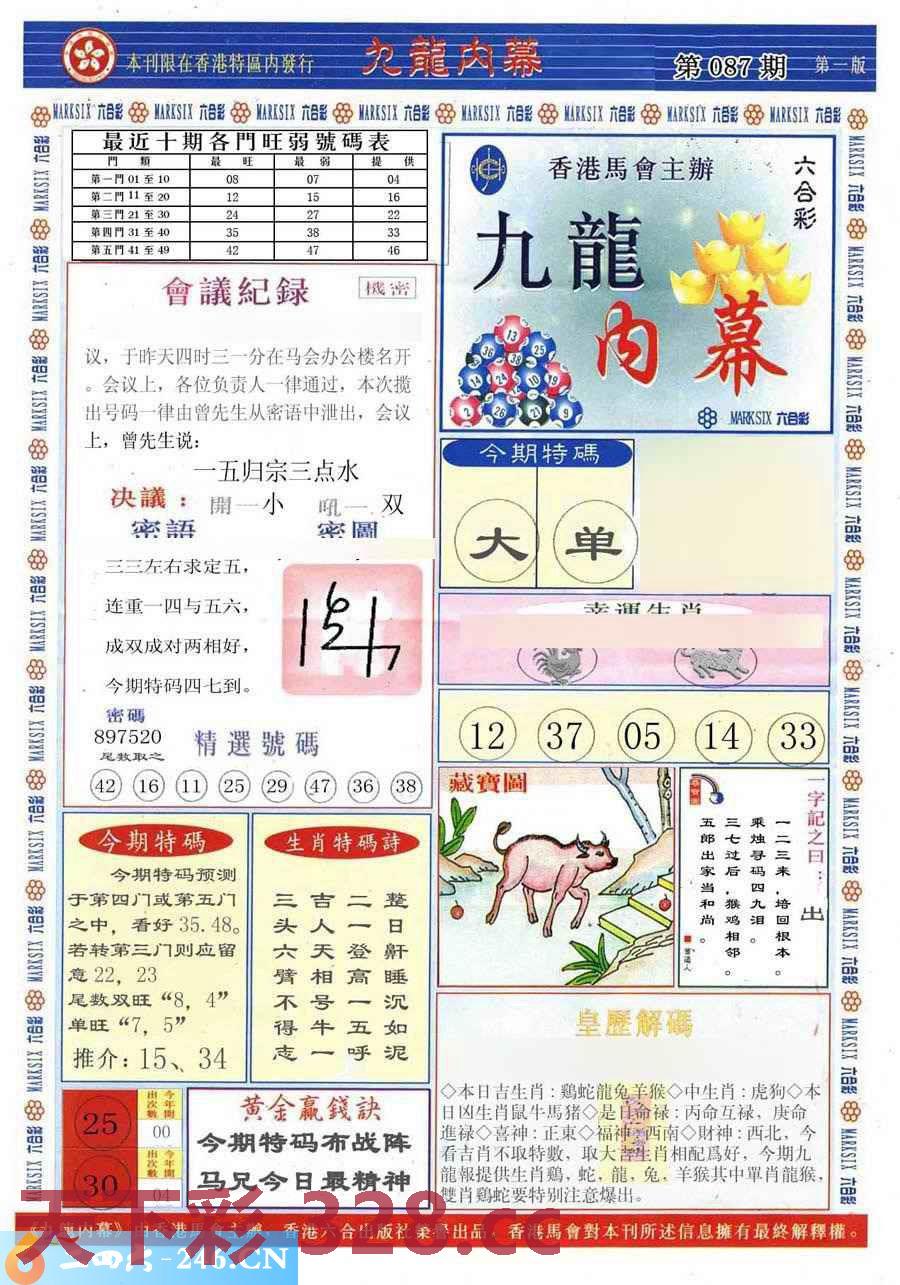 本刊限在香港特區内發行
九龍内幕
第 087 期
第一版
MARKSIX 六合彩
最近十期各門旺弱號碼表
門 類 最 旺 最 弱 提 供
第一門 01 至 10 08 07 04
第二門 11 至 20 12 15 16
第三門 21 至 30 24 27 22
第四門 31 至 40 35 38 33
第五門 41 至 49 42 47 46
會議紀録
機密
议，于昨天四时三一分在马会办公楼名开
。会议上，各位负责人一律通过，本次搅
出号码一律由曾先生从密语中泄出，会议
上，曾先生说：
一五归宗三点水
决議：
開一小
吼一 双
密語
密圖
三三左右求定五，
连重一四与五六，
成双成对两相好，
今期特码四七到。
密碼
897520
尾数取之
精選號碼
42 16 11 25 29 47 36 38
香港馬會主辦
六合彩
九龍
内幕
13
36 38 25
14 24 10 19
2 26 21 9
MARKSIX 六合彩
今期特碼
大 单
幸運生肖
12 37 05 14 33
藏寶圖
一字記之曰：出
一二三来，培回根本。
乘烛寻码四九泪。
三七过后，猴鸡相邻。
五郎出家当和尚。
今期特碼
今期特码预测
于第四门或第五门
之中，看好 35.48。
若转第三门则应留
意 22，23
尾数双旺“8，4”
单旺“7，5”
推介：15、34
生肖特碼詩
整日鼾睡沉如泥
二一登高一五呼
吉人天相号牛一
三头六臂不得志
皇歷解碼
◇本日吉生肖：鷄蛇龍兔羊猴◇中生肖：虎狗◇本
日凶生肖鼠牛馬豬◇是日命禄：丙命互禄，庚命
進禄◇喜神：正東◇福神：西南◇財神：西北，今
看吉肖不取特數，取大吉生肖相配爲好，今期九
龍報提供生肖鷄，蛇，龍，兔，羊猴其中單肖龍猴，
雙肖鷄蛇要特别注意爆出。
25
今年開出次數
00
30
今年開出次數
04
黄金赢錢訣
今期特码布战阵
马兄今日最精神
《九龍内幕》由香港馬會主辦，香港六合出版社榮譽出品，香港馬會對本刊所述信息擁有最終解釋權。
天下彩 328.cc
246.CN